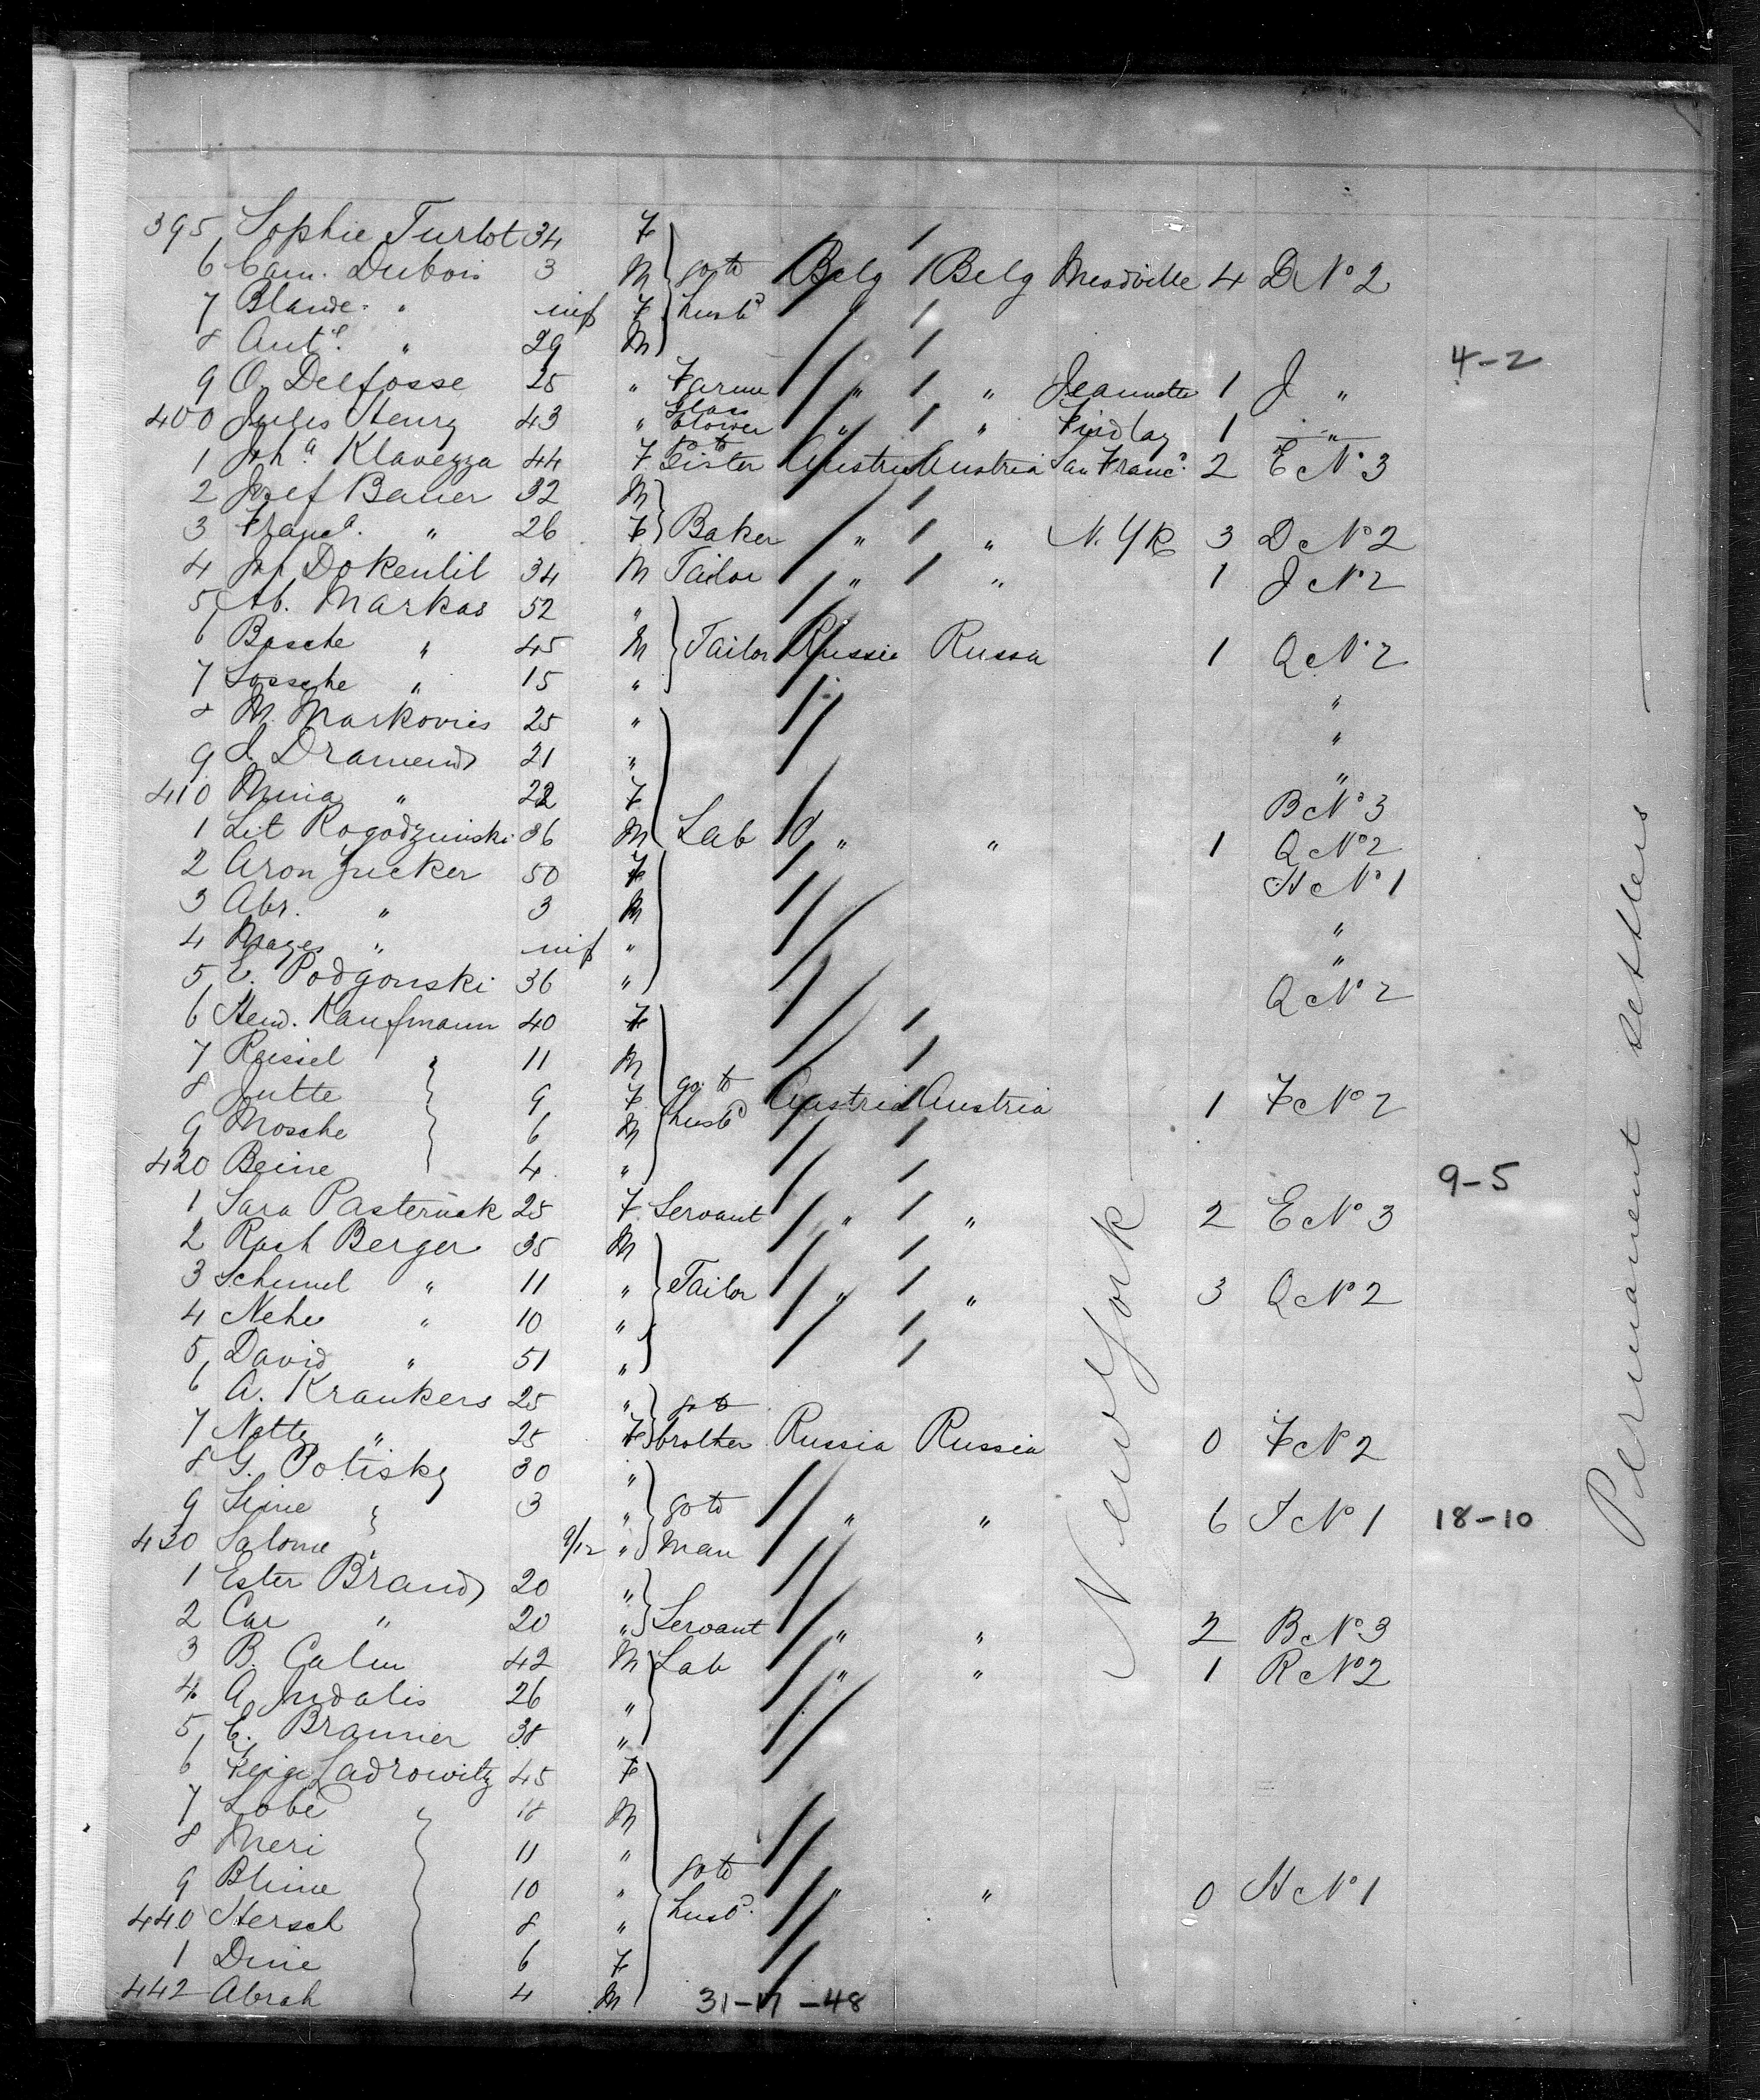 395 Sophie Turlot 34 F
6 Cam. Dubois 3 M go to Belg Belg Meadville 4 D No 2
7 Blande " inf F husbd
8 Ant. " 29 M
4-2
9 O. Delfosse 25 " Farmer " " Jeannette 1 J "
400 Jules Henry 43 " Glass blower " " Findlay 1 "
1 Joha Klavezza 44 F go to Sister Austria Austria San Franc. 2 E No 3
2 Josef Bauer 32 M
3 Franca. " 26 F Baker " " N. Yk 3 D No 2
4 Jos Dokenlil 34 M Tailor " " 1 J No 2
5 Ab. Markas 52 "
6 Basche " 45 M Tailor Russia Russia 1 Q No 2
7 Sossche " 15 " "
8 M. Markovies 25 " "
9 Dramend 21 " "
410 Mina " 22 F B No 3
1 Lit Rogodzinski 36 M Lab " " 1 Q No 2
2 Aron Zucker 50 F H No 1
3 Abr. " 3 M "
4 Moges " inf " "
5 Podgonski 36 " Q No 2
6 Hend. Kaufmann 40 F
7 Reissel " 11 M
8 Jutte 9 F go to husbd Austria Austria 1 F No 2
9 Mosche 6 M
420 Beine 4 "
9-5
1 Sara Pasternak 25 F Servant " " 2 E No 3
2 Rach Berger 35 M
3 Schmul " 11 " Tailor " " 3 Q No 2
4 Nehe " 10 "
5 David " 51 "
6 A. Krankers 25 " go to
7 Nette " 25 F brother Russia Russia 0 F No 2
8 G. Potisky 30 "
9 Seine " 3 " go to " " 6 J No 1 18-10
430 Salome " 9/12 " Man
1 Ester Brand 20 "
2 Car " 20 " Servant " " 2 B No 3
3 B. Calm 42 M Lab " " 1 R No 2
4 A. Judalis 26 "
5 E. Branner 38 "
6 Feige Ladrowitz 45 F
7 Lobe " 18 M
8 Meri 11 "
9 Blime 10 " go to husbd. " " 0 H No 1
440 Hersch 8 "
1 Dine 6 F
442 Abrah 4 M
31-17-48
New York
Permanent settlers